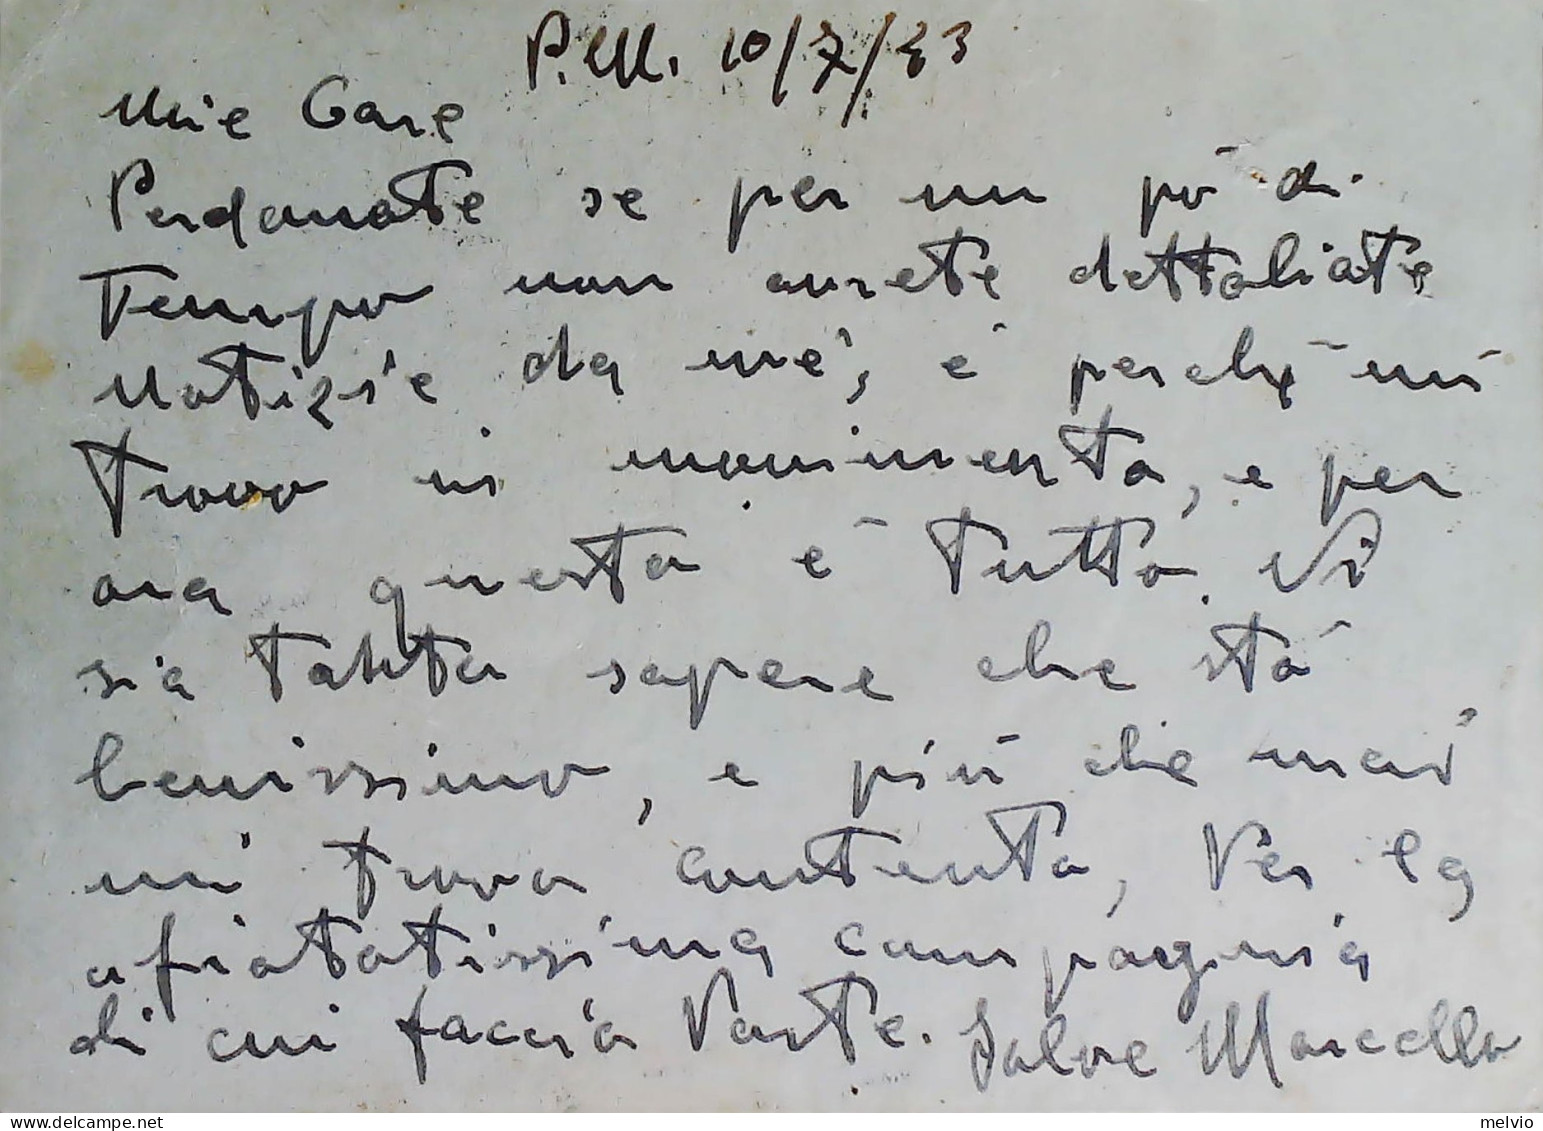 P.M. 10/7/43
Mie Care
Perdonate se per un pò di
Tempo non avrete dettaliate
Notizie da me, è perchè mi
trovo in movimento, e per
ora questo è tutto. Vi
sia tanto sapere che stò
benissimo, e più che mai
mi trovo contento, Per la
afiatatissima compagnia
di cui faccio Parte. Salve Marcello
melvio